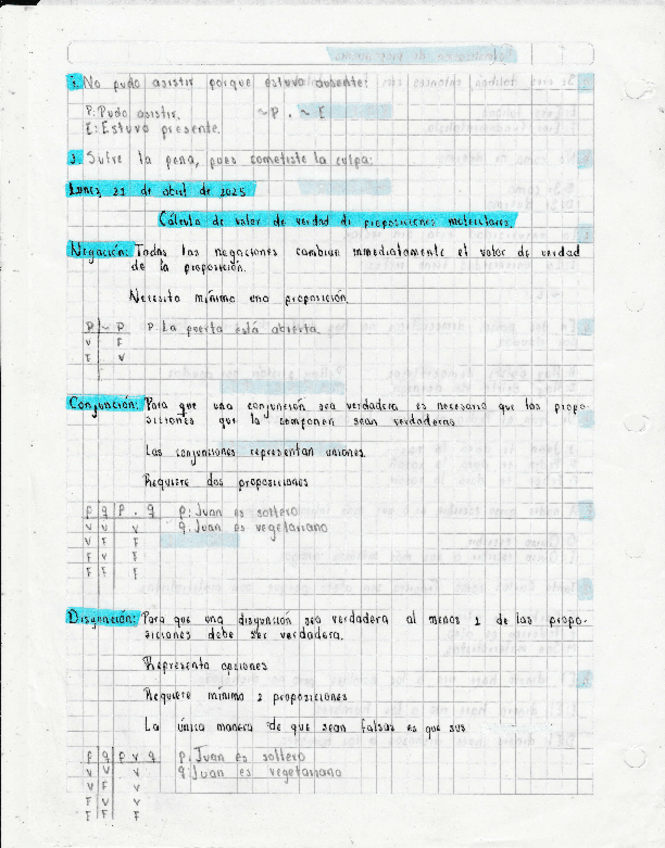 2. No pudo asistir porque estuvo ausente:
P: Pudo asistir. ~P . ~E
E: Estuvo presente.
3. Sufre la pena, pues cometiste la culpa:
Lunes, 21 de abril de 2025
Cálculo de valor de verdad de proposiciones moleculares.
Negación: Todas las negaciones cambian inmediatamente el valor de verdad
de la proposición.
Necesita mínimo una proposición.
P ~ P P. La puerta está abierta.
V F
F V
Conjunción: Para que una conjunción sea verdadera es necesario que las propo-
siciones que la componen sean verdaderas
Las conjunciones representan uniones.
Requiere dos proposiciones
p q p . q p: Juan es soltero
V V V q. Juan es vegetariano
V F F
F V F
F F F
Disyunción: Para que una disyunción sea verdadera al menos 1 de las propo-
siciones debe ser verdadera.
Representa opciones
Requiere mínimo 2 proposiciones
La única manera de que sean falsas es que sus
p q p v q p. Juan es soltero
V V V q: Juan es vegetariano
V F V
F V V
F F F